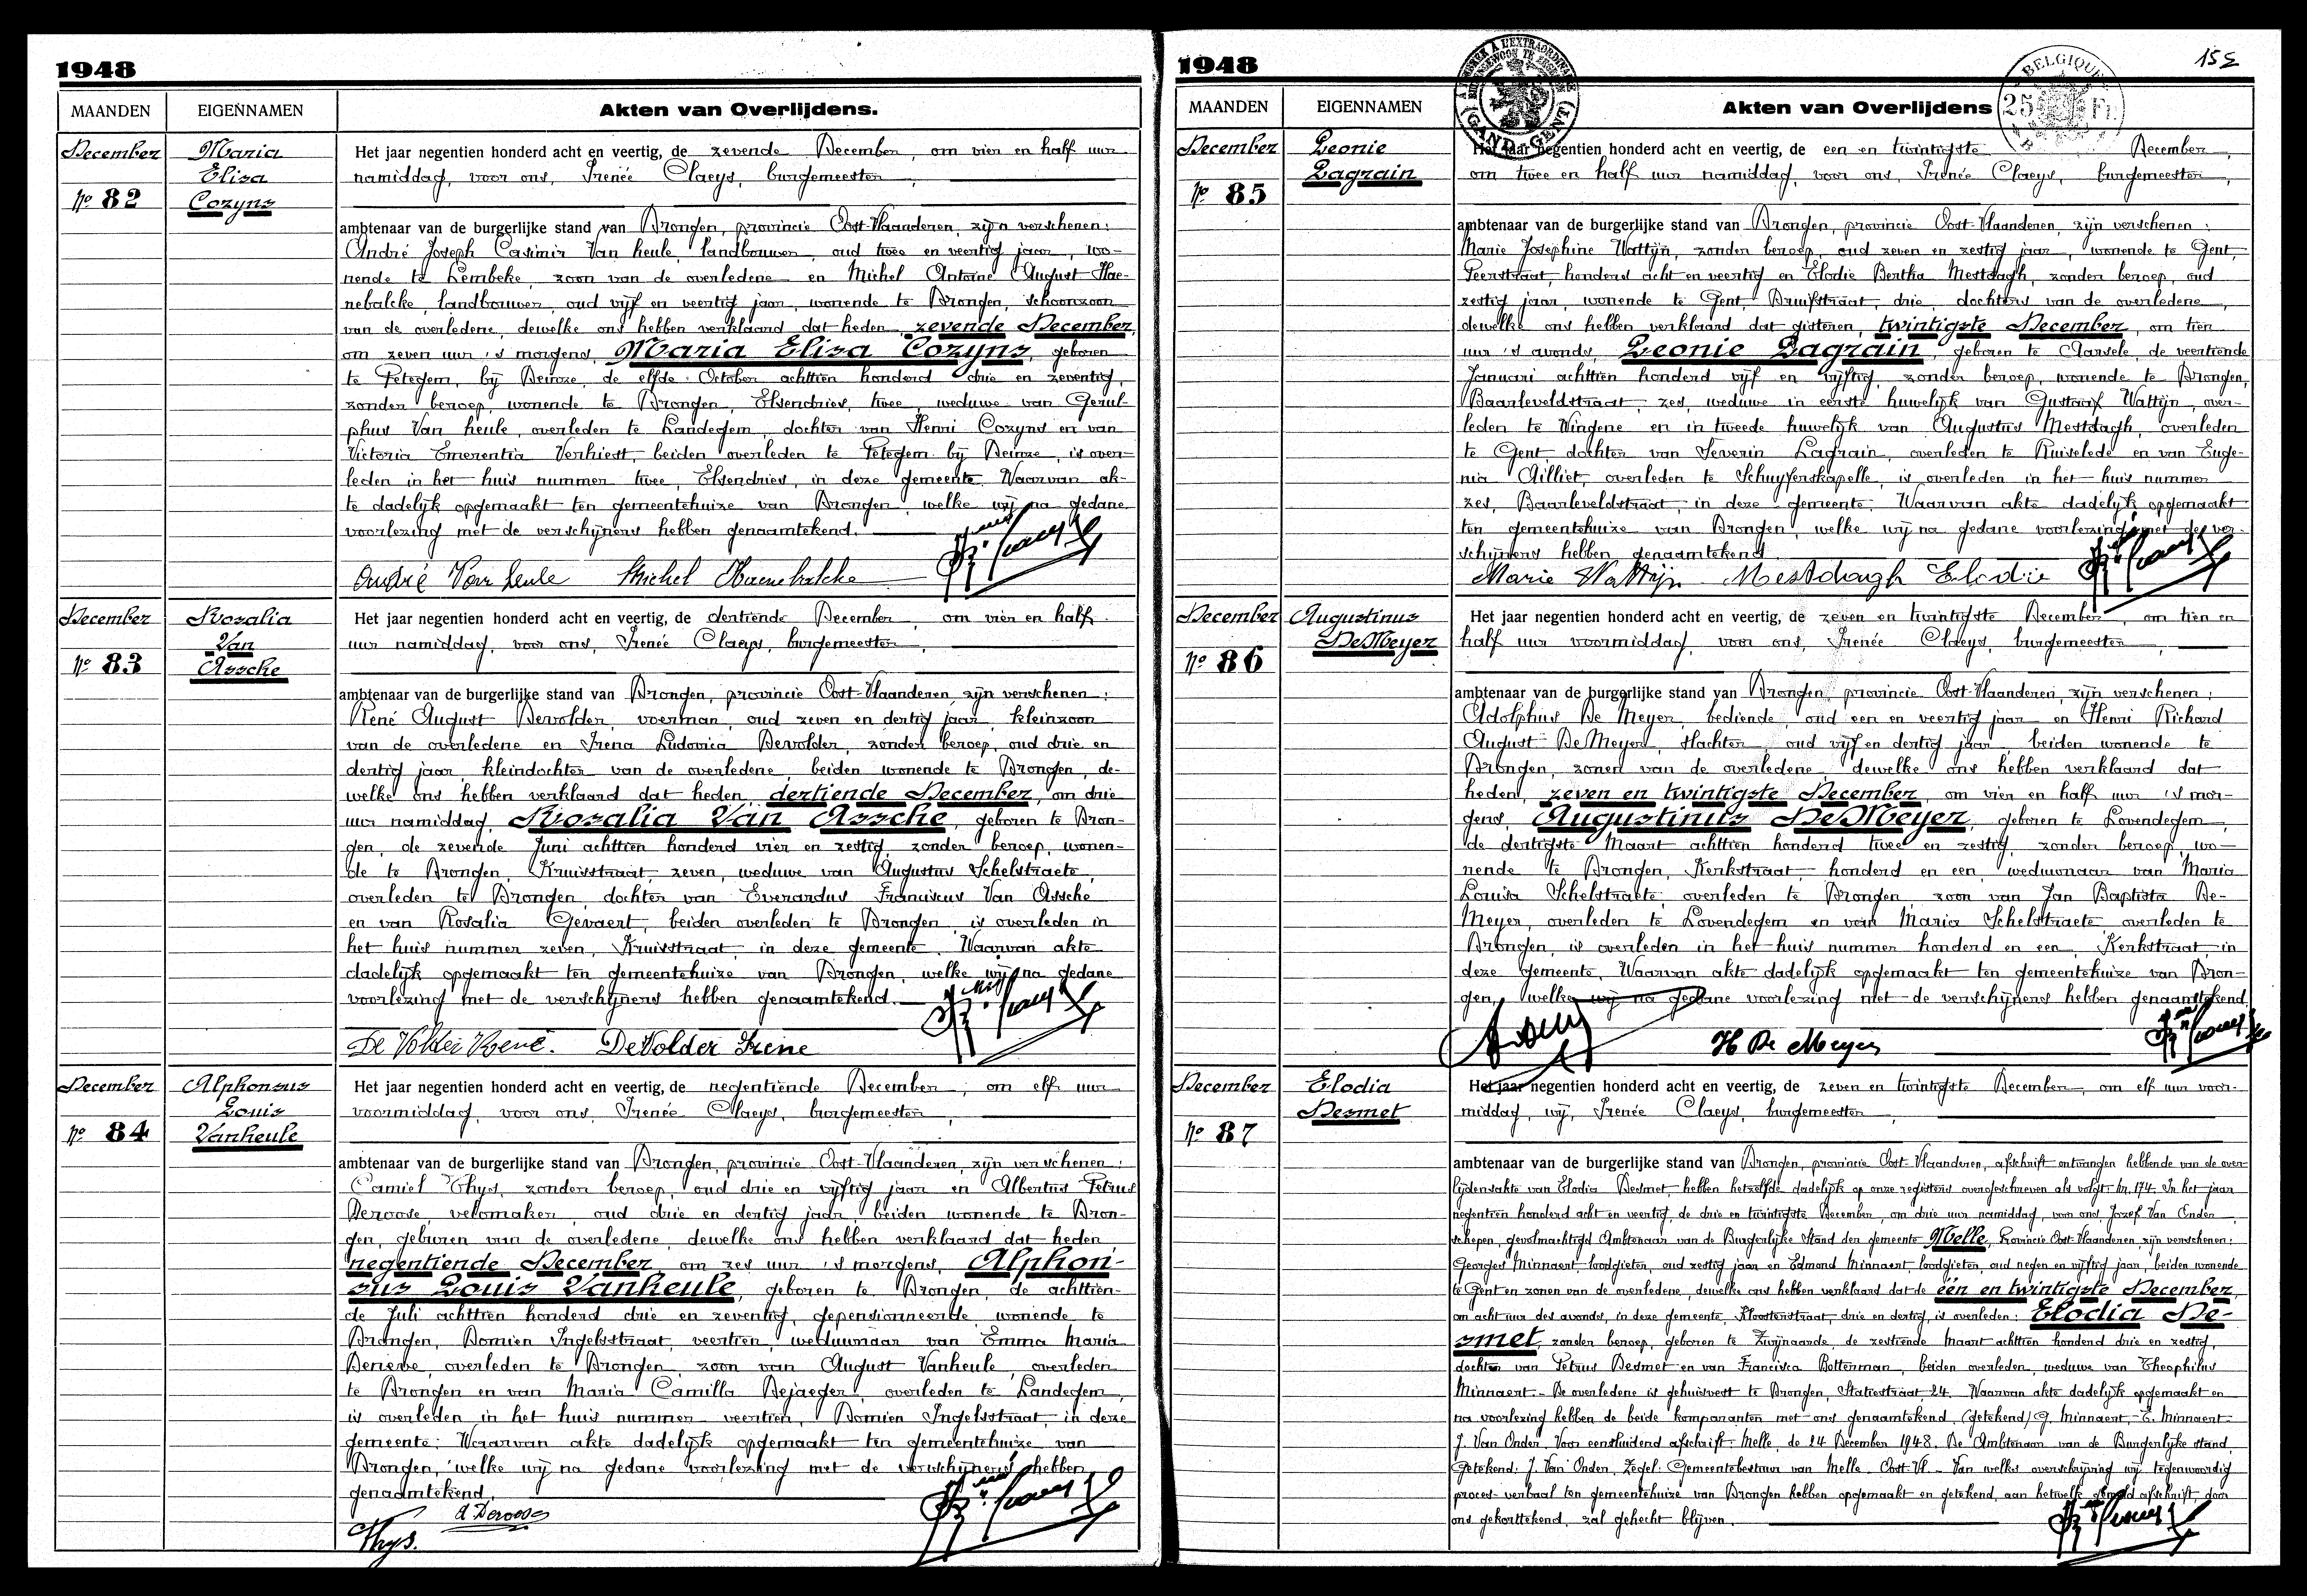 1948
MAANDEN EIGENNAMEN Akten van Overlijdens.
December
Nº 82
Maria
Elisa
Cozyns
Het jaar negentien honderd acht en veertig, de zevende December, om vier en half uur
namiddag, voor ons, Irenée Claeys, burgemeester,
ambtenaar van de burgerlijke stand van Drongen, provincie Oost-Vlaanderen, zijn verschenen:
André Joseph Casimir Van heule, landbouwer, oud twee en veertig jaar, wo-
nende te Lembeke, zoon van de overledene en Michel Antoine August Hae-
nebalcke, landbouwer, oud vijf en veertig jaar, wonende te Drongen, schoonzoon
van de overledene, dewelke ons hebben verklaard dat heden, zevende December,
om zeven uur 's morgens, Maria Elisa Cozyns, geboren
te Petegem, bij Deinze, de elfde October achttien honderd drie en zeventig,
zonder beroep, wonende te Drongen, Elsendries, twee, weduwe van Gerul-
phus Van heule, overleden te Landegem, dochter van Henri Cozyns en van
Victoria Emerentia Verhiest, beiden overleden te Petegem bij Deinze, is over-
leden in het huis nummer twee, Elsendries, in deze gemeente. Waarvan ak-
te dadelijk opgemaakt ten gemeentehuize van Drongen, welke wij na gedane
voorlezing met de verschijners hebben genaamtekend.
André Van heule Michel Haenebalcke
December
Nº 83
Rosalia
Van
Assche
Het jaar negentien honderd acht en veertig, de dertiende December, om vier en half
uur namiddag, voor ons, Irenée Claeys, burgemeester,
ambtenaar van de burgerlijke stand van Drongen, provincie Oost-Vlaanderen, zijn verschenen:
René August Devolder, voerman, oud zeven en dertig jaar, kleinzoon
van de overledene en Irena Ludovica Devolder, zonder beroep, oud drie en
dertig jaar, kleindochter van de overledene, beiden wonende te Drongen, de-
welke ons hebben verklaard dat heden, dertiende December, om drie
uur namiddag, Rosalia Van Assche, geboren te Dron-
gen, de zevende Juni achttien honderd vier en zestig, zonder beroep, wonen-
de te Drongen, Kruisstraat, zeven, weduwe van Augustus Schelstraete,
overleden te Drongen, dochter van Everardus Franciscus Van Assche
en van Rosalia Gevaert, beiden overleden te Drongen, is overleden in
het huis nummer zeven, Kruisstraat, in deze gemeente. Waarvan akte
dadelijk opgemaakt ten gemeentehuize van Drongen, welke wij na gedane
voorlezing met de verschijners hebben genaamtekend.
De Volder René. DeVolder Irene
December
Nº 84
Alphonsus
Louis
Vanheule
Het jaar negentien honderd acht en veertig, de negentiende December, om elf uur
voormiddag, voor ons, Irenée Claeys, burgemeester,
ambtenaar van de burgerlijke stand van Drongen, provincie Oost-Vlaanderen, zijn verschenen:
Camiel Thys, zonder beroep, oud drie en vijftig jaar en Albertus Petrus
Deroose, velomaker, oud drie en dertig jaar, beiden wonende te Dron-
gen, geburen van de overledene, dewelke ons hebben verklaard dat heden
negentiende December, om zes uur 's morgens, Alphon-
sus Louis Vanheule, geboren te Drongen, de achttien-
de Juli achttien honderd drie en zeventig, gepensionneerde, wonende te
Drongen, Domien Ingelsstraat, veertien, weduwnaar van Emma Maria
Deneve, overleden te Drongen, zoon van August Vanheule, overleden
te Drongen en van Maria Camilla Dejaeger, overleden te Landegem,
is overleden in het huis nummer veertien, Domien Ingelsstraat, in deze
gemeente. Waarvan akte dadelijk opgemaakt ten gemeentehuize van
Drongen, welke wij na gedane voorlezing met de verschijners hebben
genaamtekend.
Thys. A Deroose
1948
155
BELGIQUE
25 Fr.
GAND - GENT
MAANDEN EIGENNAMEN Akten van Overlijdens
December
Nº 85
Leonie
Lagrain
Het jaar negentien honderd acht en veertig, de een en twintigste December,
om twee en half uur namiddag, voor ons, Irenée Claeys, burgemeester,
ambtenaar van de burgerlijke stand van Drongen, provincie Oost-Vlaanderen, zijn verschenen:
Marie Josephine Wattijn, zonder beroep, oud zeven en zestig jaar, wonende te Gent,
Peerstraat, honderd acht en veertig en Elodie Bertha Mestdagh, zonder beroep, oud
zestig jaar, wonende te Gent, Druifstraat, drie, dochters van de overledene,
dewelke ons hebben verklaard dat gisteren, twintigste December, om tien
uur 's avonds, Leonie Lagrain, geboren te Aarsele, de veertiende
Januari achttien honderd vijf en vijftig, zonder beroep, wonende te Drongen,
Baarleveldstraat, zes, weduwe in eerste huwelijk van Gustaaf Wattijn, over-
leden te Wingene en in tweede huwelijk van Augustus Mestdagh, overleden
te Gent, dochter van Severin Lagrain, overleden te Ruiselede en van Euge-
nia Gilliet, overleden te Schuyferskapelle, is overleden in het huis nummer
zes, Baarleveldstraat, in deze gemeente. Waarvan akte dadelijk opgemaakt
ten gemeentehuize van Drongen, welke wij na gedane voorlezing met de ver-
schijners hebben genaamtekend.
Marie Wattijn Mestdagh Elodie
December
Nº 86
Augustinus
De Meyer
Het jaar negentien honderd acht en veertig, de zeven en twintigste December, om tien en
half uur voormiddag, voor ons, Irenée Claeys, burgemeester,
ambtenaar van de burgerlijke stand van Drongen, provincie Oost-Vlaanderen, zijn verschenen:
Adolphus De Meyer, bediende, oud een en veertig jaar en Henri Richard
August De Meyer, slachter, oud vijf en dertig jaar, beiden wonende te
Drongen, zonen van de overledene, dewelke ons hebben verklaard dat
heden, zeven en twintigste December, om vier en half uur 's mor-
gens, Augustinus De Meyer, geboren te Lovendegem,
de dertigste Maart achttien honderd twee en zestig, zonder beroep, wo-
nende te Drongen, Kerkstraat, honderd en een, weduwnaar van Maria
Louisa Schelstraete, overleden te Drongen, zoon van Jan Baptista De-
Meyer, overleden te Lovendegem en van Maria Schelstraete overleden te
Drongen, is overleden in het huis nummer honderd en een, Kerkstraat, in
deze gemeente. Waarvan akte dadelijk opgemaakt ten gemeentehuize van Dron-
gen, welke wij na gedane voorlezing met de verschijners hebben genaamtekend.
H De Meyer
December
Nº 87
Elodia
Desmet
Het jaar negentien honderd acht en veertig, de zeven en twintigste December, om elf uur voor-
middag, wij, Irenée Claeys, burgemeester,
ambtenaar van de burgerlijke stand van Drongen, provincie Oost-Vlaanderen, afschrift ontvangen hebbende van de over-
lijdensakte van Elodia Desmet, hebben hetzelfde dadelijk op onze registers overgeschreven als volgt: nr. 174. In het jaar
negentien honderd acht en veertig, de drie en twintigste December, om drie uur namiddag, voor ons, Jozef Van Onder,
schepen, gevolmachtigd Ambtenaar van de Burgerlijke Stand der gemeente Melle, Provincie Oost-Vlaanderen, zijn verschenen:
Georges Minnaert, loodgieter, oud zestig jaar en Edmond Minnaert, loodgieter, oud negen en vijftig jaar, beiden wonende
te Gent en zonen van de overledene, dewelke ons hebben verklaard dat de één en twintigste December,
om acht uur des avonds, in deze gemeente, Kloosterstraat, drie en dertig, is overleden: Elodia De-
smet, zonder beroep, geboren te Zwijnaarde, de zestiende Maart achttien honderd drie en zestig,
dochter van Petrus Desmet en van Francisca Botterman, beiden overleden, weduwe van Theophilus
Minnaert. De overledene is gehuisvest te Drongen, Statiestraat, 24. Waarvan akte dadelijk opgemaakt en
na voorlezing hebben de beide komparanten met ons genaamtekend. (getekend) G. Minnaert, - E. Minnaert
J. Van Onder. Voor eensluidend afschrift: Melle, de 24 December 1948. De Ambtenaar van de Burgerlijke stand,
Getekend: J. Van Onder. Zegel: Gemeentebestuur van Melle. Oost-Vl. - Van welks overschrijving wij tegenwoordig
proces-verbaal ten gemeentehuize van Drongen hebben opgemaakt en getekend, aan hetwelk gemeld afschrift, door
ons gekorttekend, zal gehecht blijven.